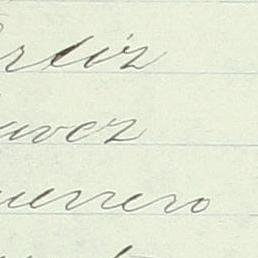 rtiz
avez
uerrero